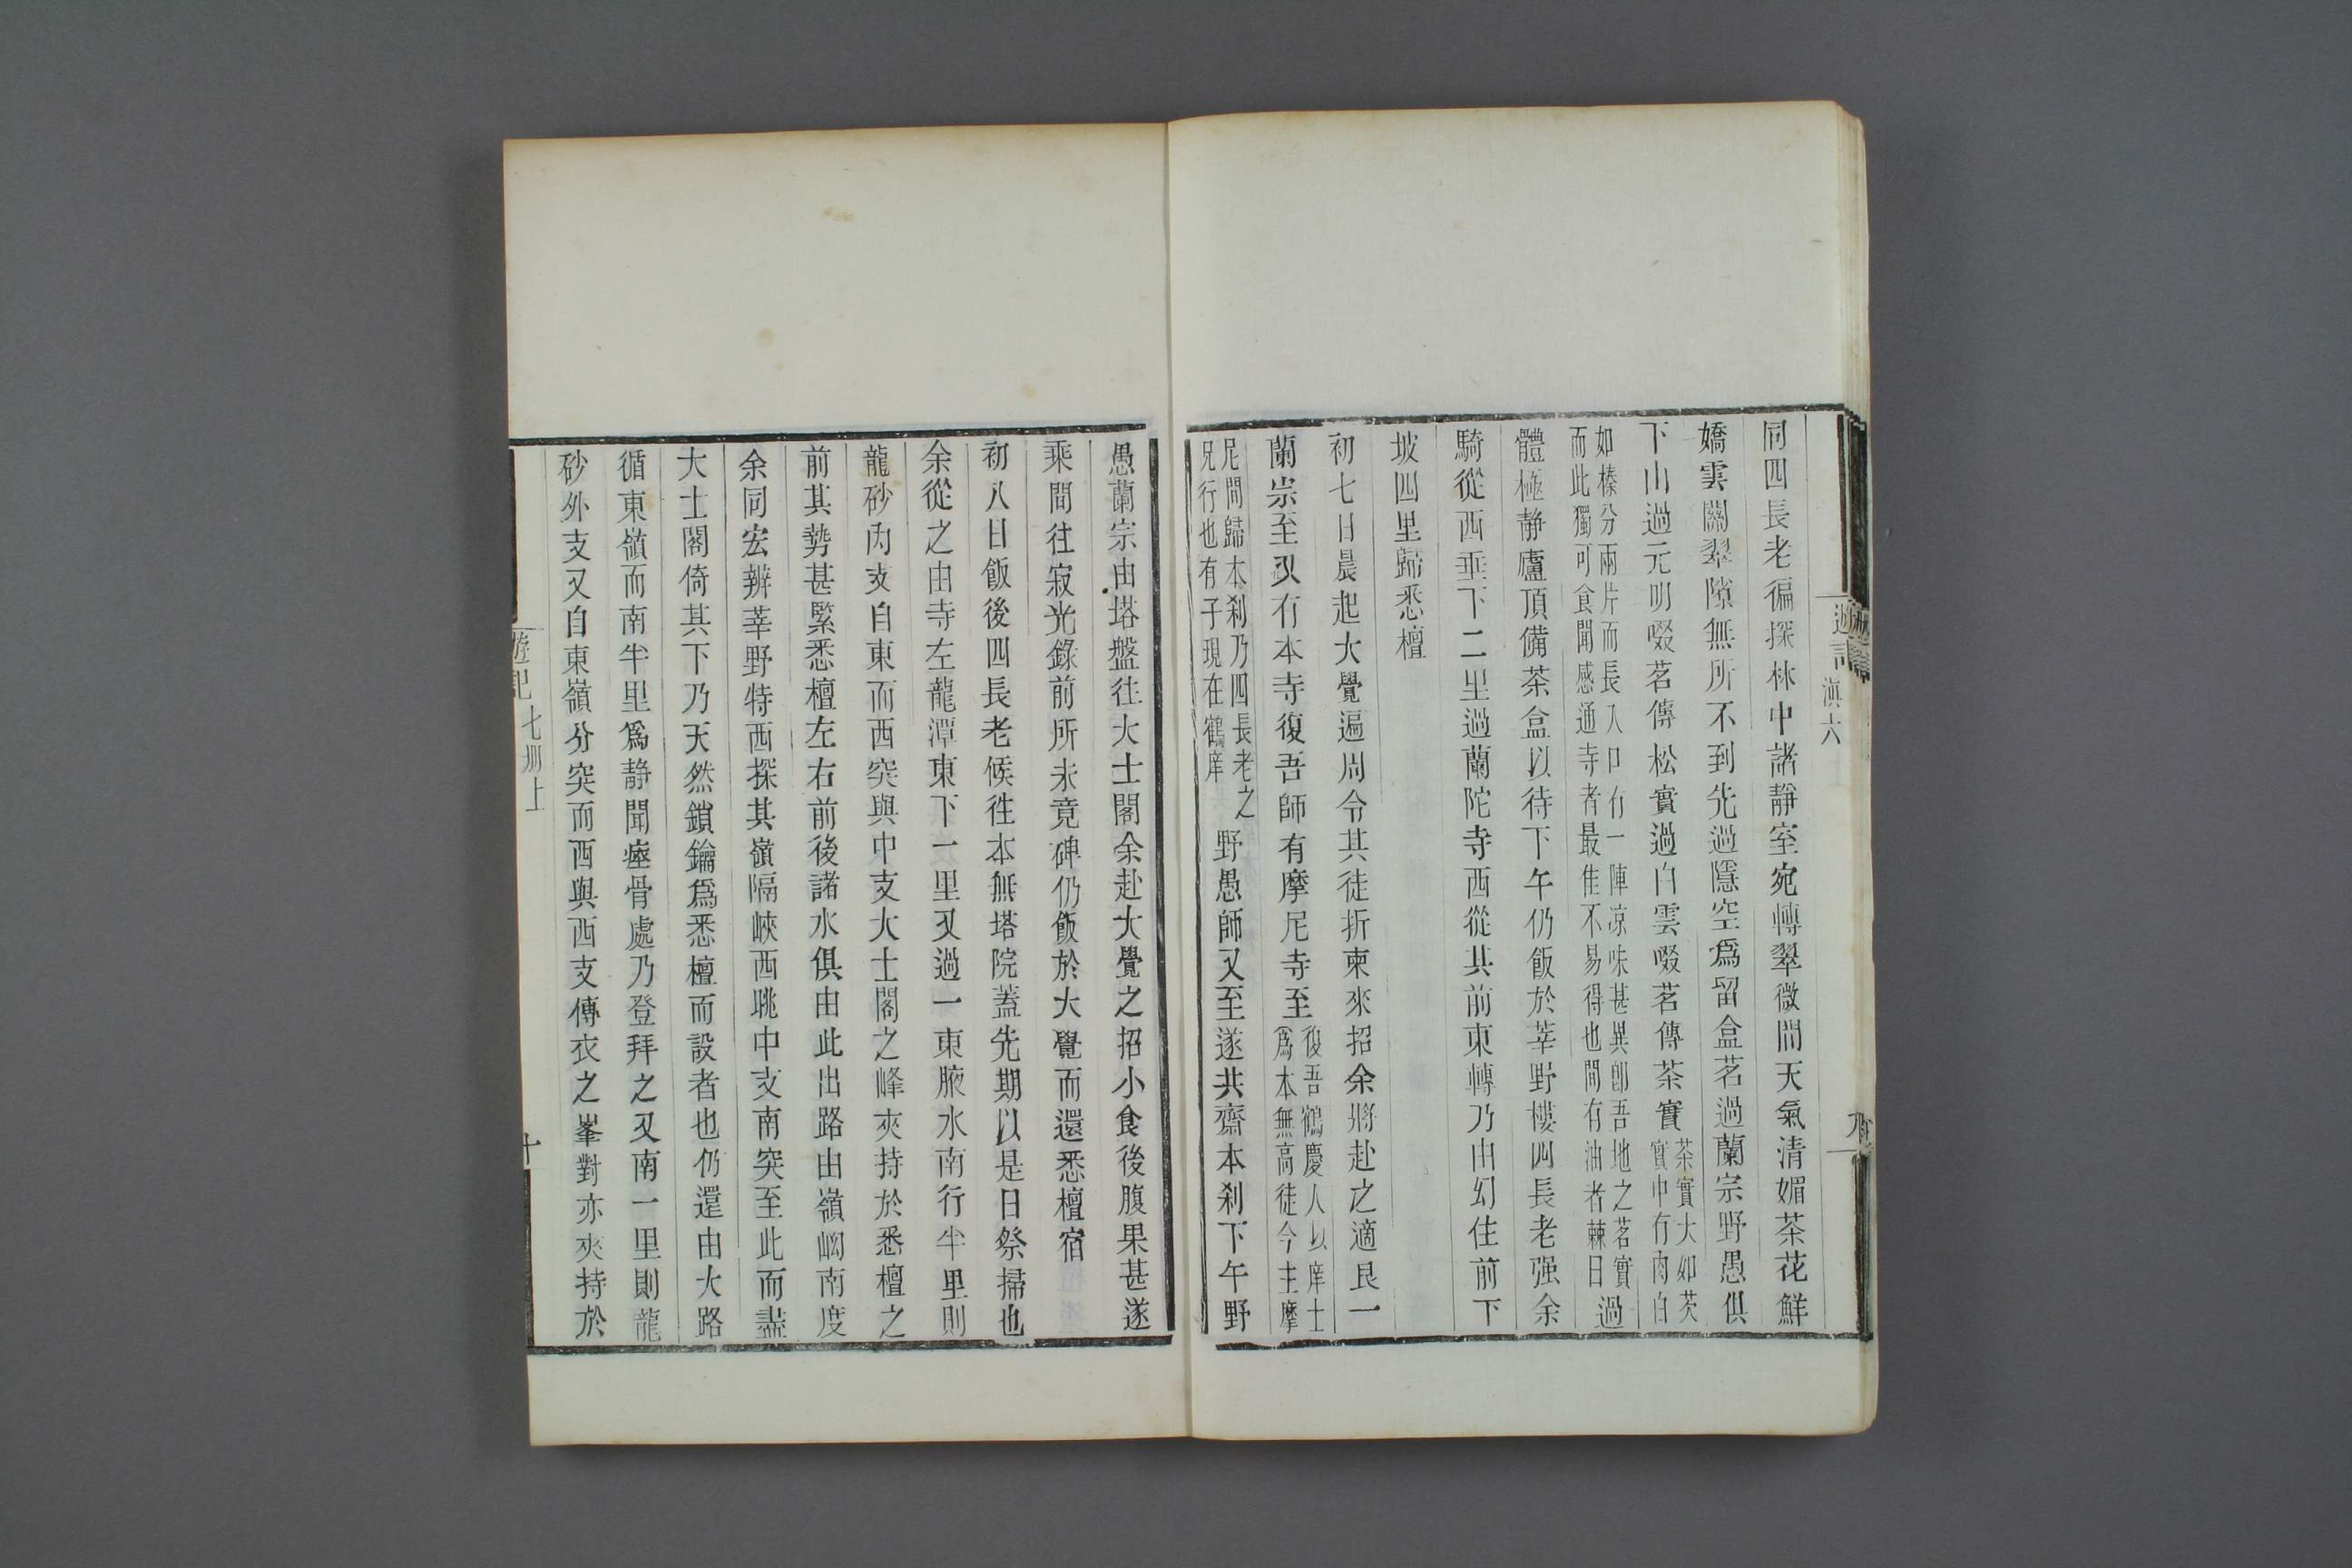 遊記
滇六
同四長老徧探林中諸靜室宛轉翠微間天氣清媚茶花鮮
嬌雲關翠隙無所不到先過隱空爲留盒茗過蘭宗野愚俱
下山過元明啜茗傳松實過白雲啜茗傳茶實
茶實大如芡
實中有肉白
如榛分兩片而長入口有一陣凉味甚異卽吾地之茗實
而此獨可食聞感通寺者最佳不易得也間有油者棘口
過
體極靜廬頂備茶盒以待下午仍飯於莘野樓四長老强余
騎從西垂下二里過蘭陀寺西從其前東轉乃由幻住前下
坡四里歸悉檀
初七日晨起大覺遍周令其徒折柬來招余將赴之適艮一
蘭宗至又有本寺復吾師有摩尼寺至
復吾鶴慶人以庠士
爲本無高徒今主摩
尼間歸本刹乃四長老之
兄行也有子現在鶴庠
野愚師又至遂共齋本刹下午野
愚蘭宗由塔盤往大士閣余赴大覺之招小食後腹果甚遂
乘間往寂光錄前所未竟碑仍飯於大覺而還悉檀宿
初八日飯後四長老候往本無塔院蓋先期以是日祭掃也
余從之由寺左龍潭東下一里又過一東腋水南行半里則
龍砂內支自東而西突與中支大士閣之峰夾持於悉檀之
前其勢甚緊悉檀左右前後諸水俱由此出路由嶺㘭南度
余同宏辨莘野特西探其嶺隔峽西眺中支南突至此而盡
大士閣倚其下乃天然鎖鑰爲悉檀而設者也仍還由大路
循東嶺而南半里爲靜聞瘞骨處乃登拜之又南一里則龍
砂外支又自東嶺分突而西與西支傳衣之峯對亦夾持於
遊記
七册上
十